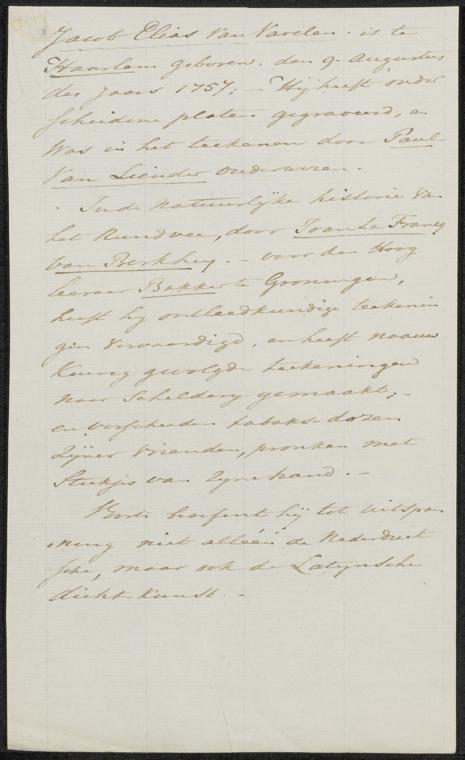 Jacob Elias Van Varelen. is te
Haarlem geboren. den 9. Augustus
des Jaars 1757; – Hij heeft onder
scheidene platen gegraveerd, en
Was in het teekenen door Paul
Van Liender onderwezen.
In de Natuurlyke historie Va
het Rundvee, door Joan Le Francq
Van Berkhey. – voor den Hoog
leeraar Bakker te Groningen,
heeft hy ontleedkundige teekenin
gen Vervaardigd, en heeft naauw
Keurig gevolgde teekeningen
naar Schildery gemaakt; –
en verscheiden tabaks-dozen
Zijner Vrienden, pronken met
Stukjes van Zyne hand. –
hij tot uitspa
nning niet alleén de Nederduit
sche, maar ook de Latynsche
dicht-Kunst. –